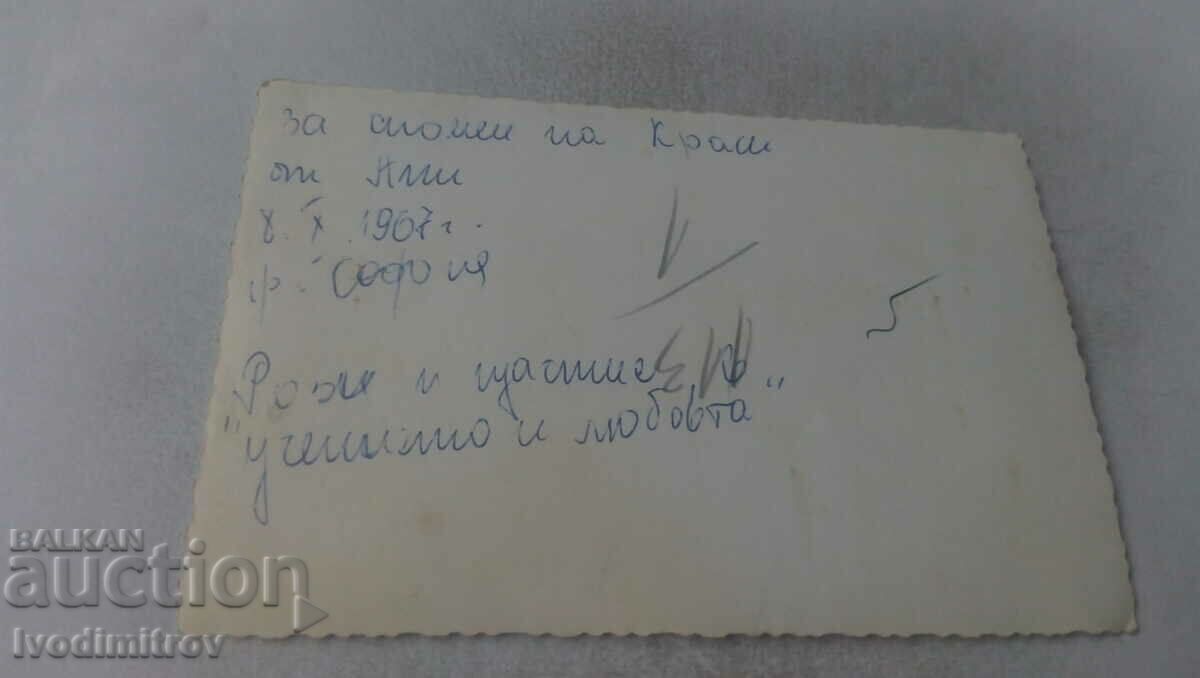 За спомен на Краси
от Ани
8. X 1967 г.
гр. София
"Рози и щастие в
учението и любовта"
BALKAN
auction
Ivodimitrov